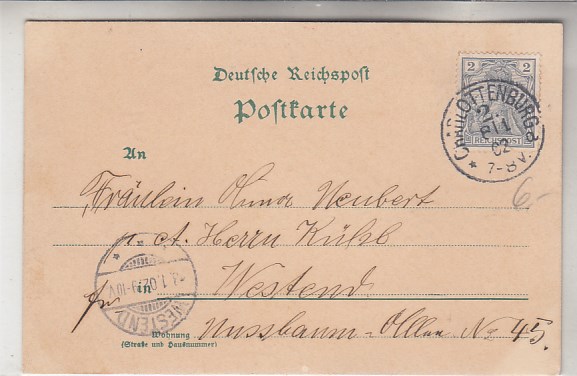 Deutsche Reichspost
Postkarte
2 2
REICHSPOST
CHARLOTTENBURG 2
1
02
7-8V.
6-
An
Fräulein Neubert
ct. Herrn Kühl
in Westend
1.02.9-10V
WESTEND
Wohnung
(Straße und Hausnummer)
Nussbaum-Allee No 45.